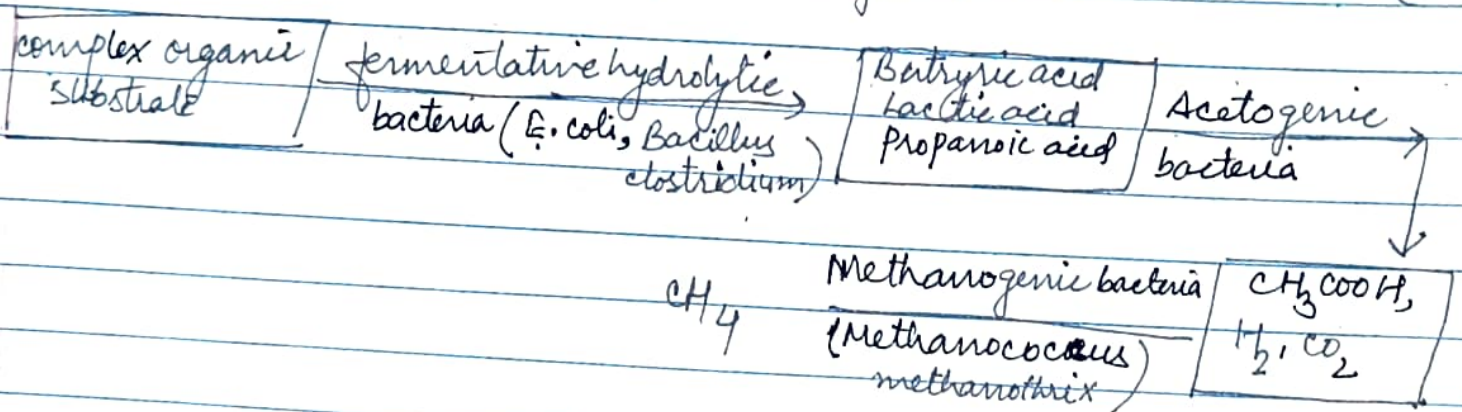 complex organic
substrate
fermentative hydrolytic
bacteria (E. coli, Bacillus
clostridium)
Butryric acid
Lactic acid
Propanoic acid
Acetogenic
bacteria
CH3COOH,
H2, CO2
Methanogenic bacteria
(Methanococcus
methanothrix)
CH4